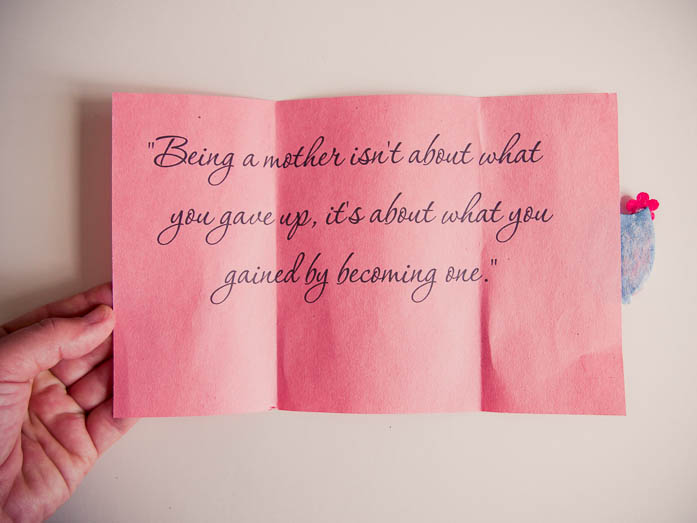 "Being a mother isn't about what
you gave up, it's about what you
gained by becoming one."